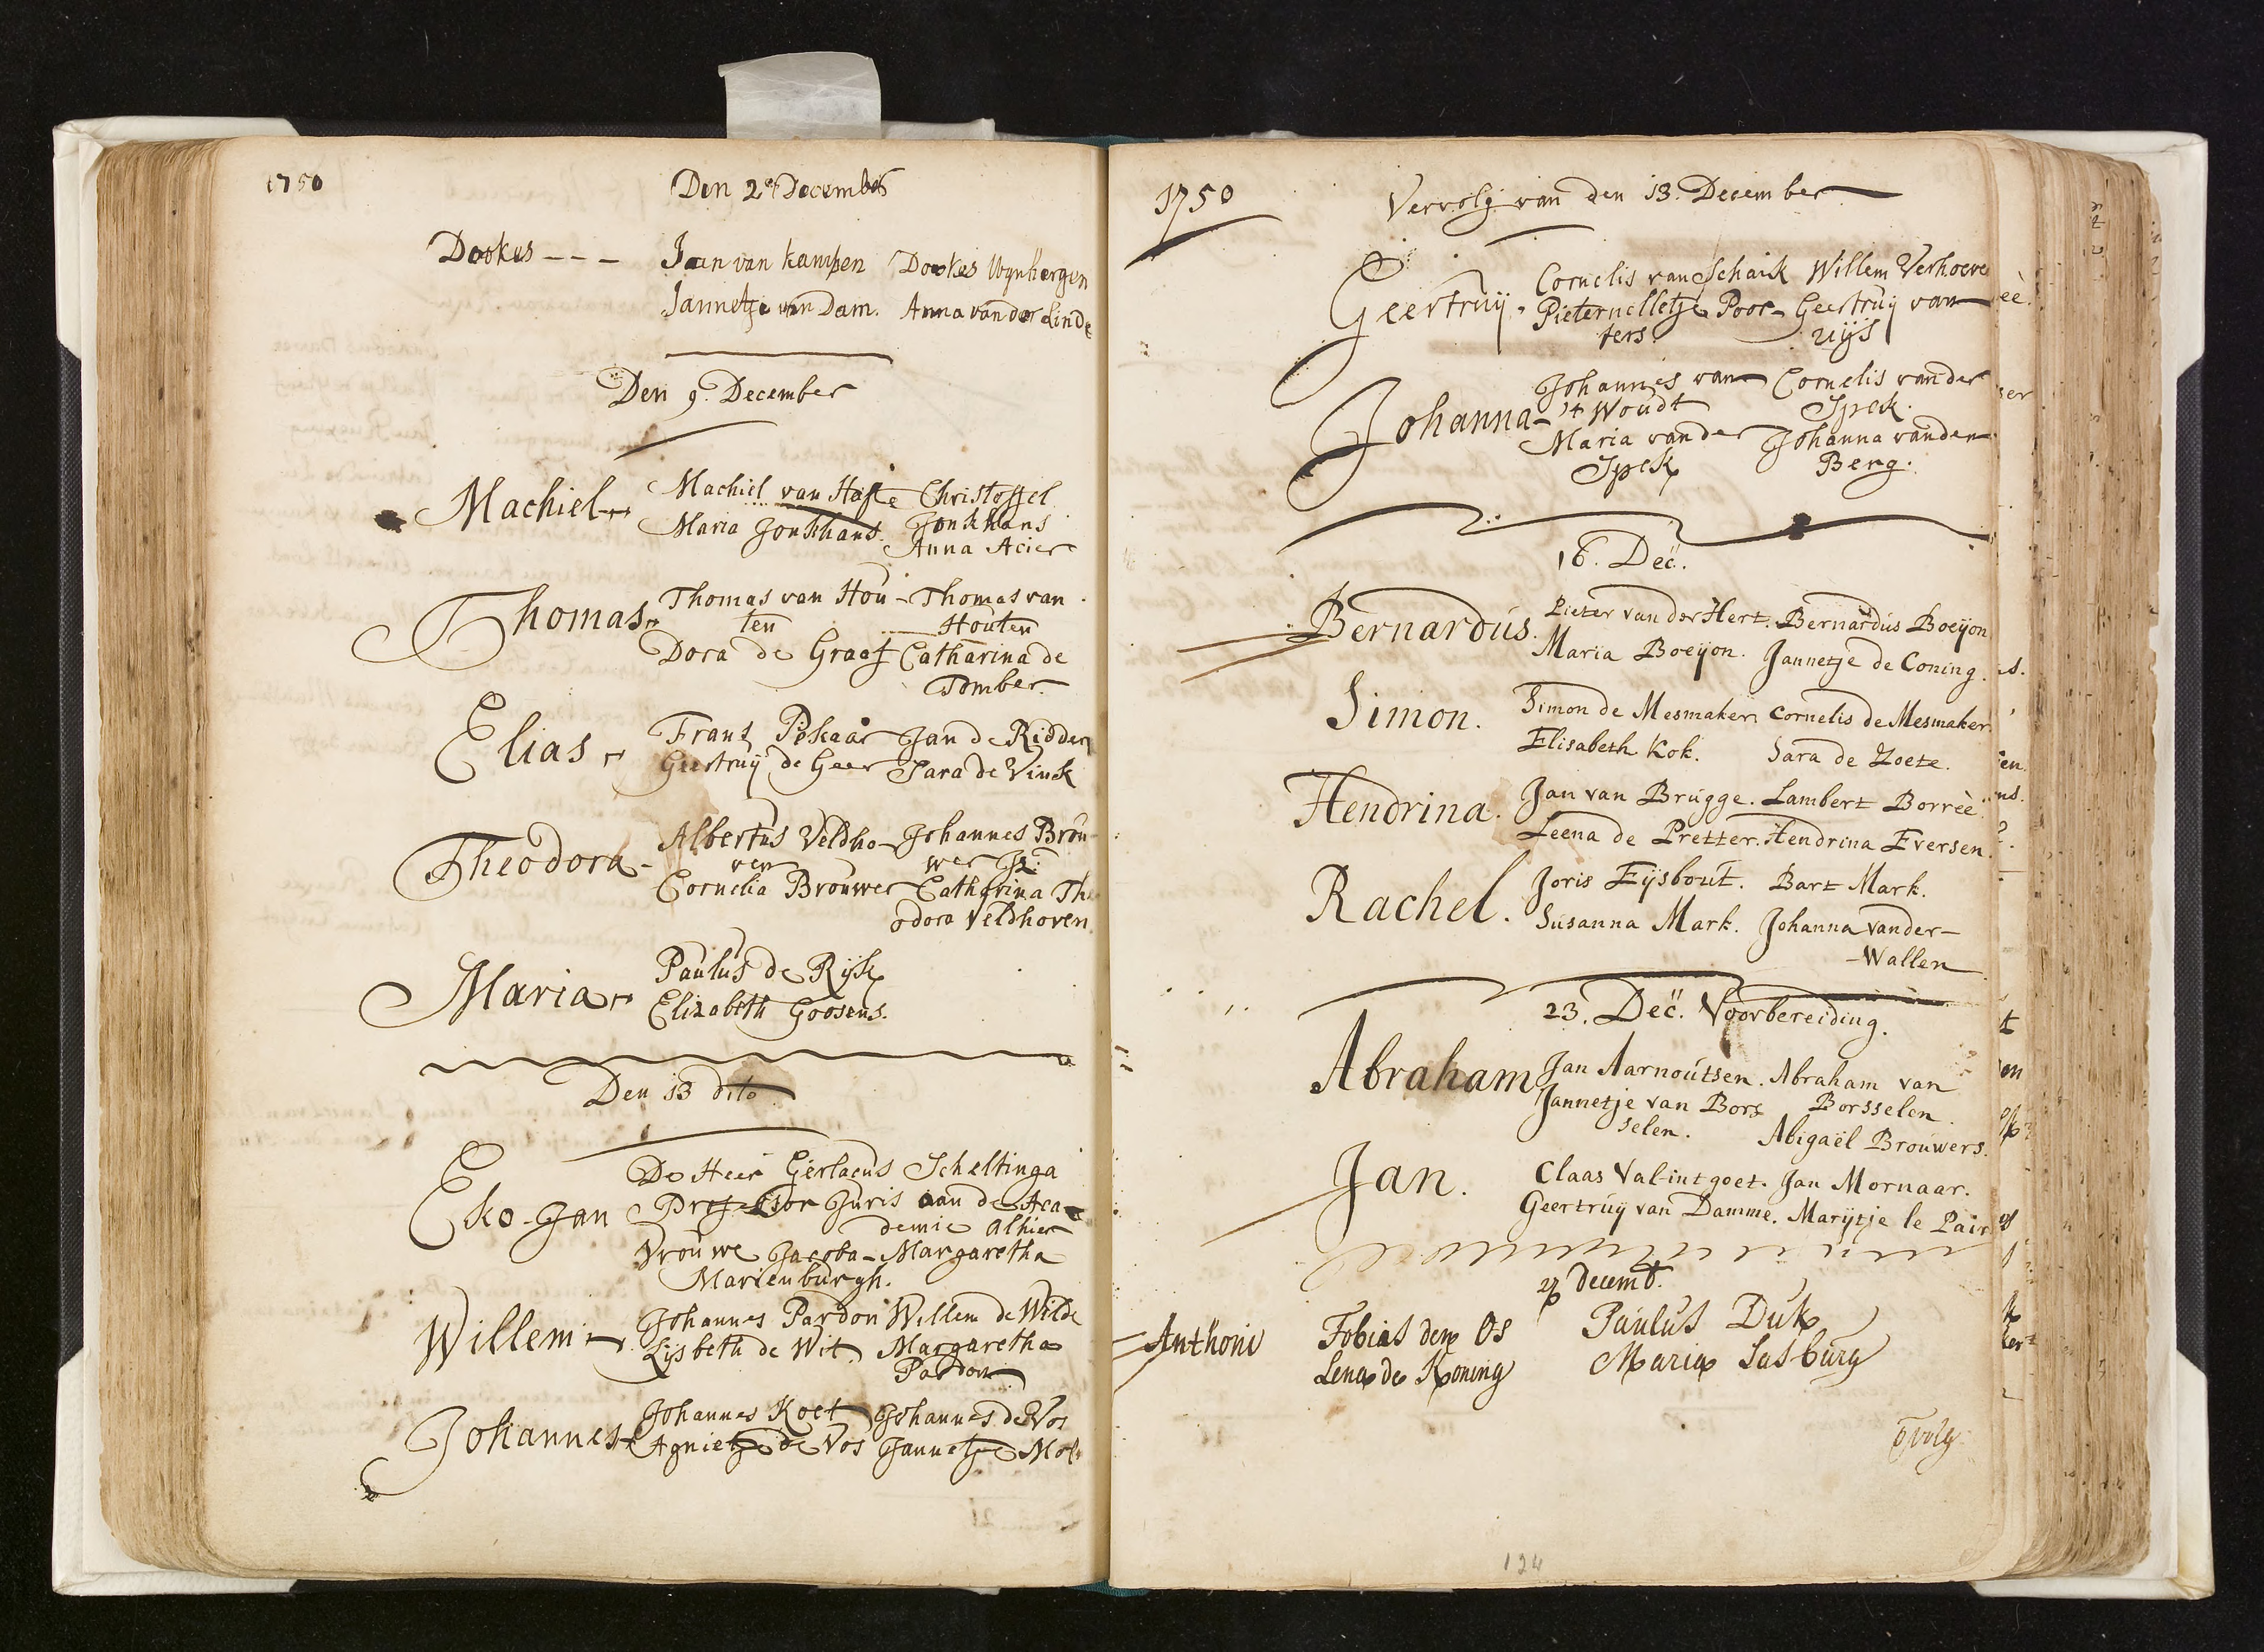 1750
Den 2en December
Dorkas --- Jan van Kampen Dorkas Wynbergen
Jannetje van Dam. Anna van der Linde
Den 9. December
Machiel Machiel van Hafte Christoffel
Maria Jonkhans. Jonkhans
Anna Acier
Thomas Thomas van Hou- Thomas van
ten Houten
Dora de Graaf Catharina de
Tomber.
Elias Frans Pekaar Jan de Ridder
Geertruij de Geer Sara de Vink
Theodora- Albertus Veldho- Johannes Brou-
ven wer Jz:
Cornelia Brouwer Catharina The
odora Veldhoven
Maria Paulus de Rijk
Elizabeth Goosens.
Den 13 dito
Eko-Jan De Heer Gerlacus Scheltinga
Professor Juris aan de Aca-
demie alhier
Vrouwe Jacoba-Margaretha
Marienburgh.
Willem Johannes Pardon Willem de Wilde
Lijsbeth de Wit. Margaretha
Pardon
Johannes Johannes Koet Johannes de Vos
Agnietje de Vos Jannetje Mol
1750 Vervolg van den 13. December
Geertruij. Cornelis van Schaik Willem Verhoeve
Pieternelletje Poor- Geertruij van
ters. Rijs
Johanna- Johannes van Cornelis van der
't Woudt Spek.
Maria van der Johanna van den
Spek Berg.
16. Dec.
Bernardus. Pieter van der Hert. Bernardus Boeijon
Maria Boeijon. Jannetje de Coning.
Simon. Simon de Mesmaker. Cornelis de Mesmaker.
Elisabeth Kok. Sara de Zoete.
Hendrina. Jan van Brugge. Lambert Borreè.
Leena de Pretter. Hendrina Eversen.
Rachel. Joris Eijsbout. Bart Mark.
Susanna Mark. Johanna vander-
-Wallen
23. Dec. Voorbereiding.
Abraham Jan Aarnoutsen. Abraham van
Jannetje van Bors Borsselen.
selen. Abigaël Brouwers.
Jan. Claas Val-int goet. Jan Mornaar.
Geertruy van Damme. Marijtje le Pair
27 decemb.
Anthoni Tobias den Os Paulus Duk
Lena de Koning Maria Sasburg
124